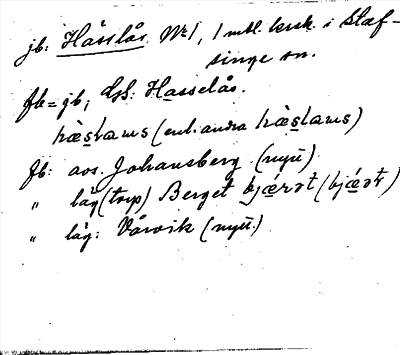 jb: Hässlås. No 1, 1 mtl. krsk. i Slöf-
singe sn.
fb = jb; Gs: Hasselås.
hæslaws (enl. andra hæslaws)
fb: avs. Johansberg (nytt)
" läg (torp) Berget bjǽrət (bjǽrt)
" läg: Vårvik (nytt.)